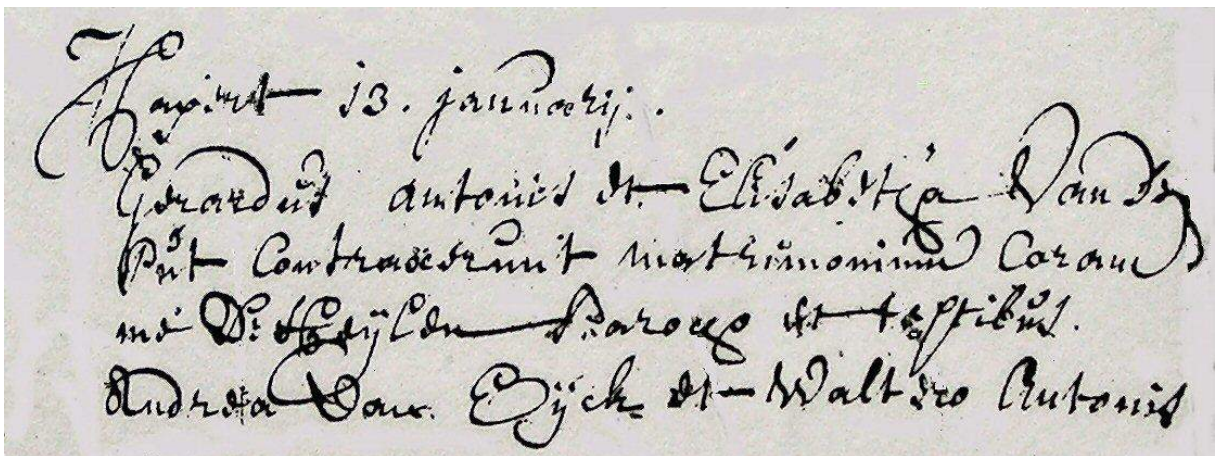 Hapert 13. januarij.
Gerardus Antonis et Elisabetha Van de
Put Contraxerunt matrimonium Coram
me Parocho et testibus.
Andrea Van Eijck et Waltero Antonis